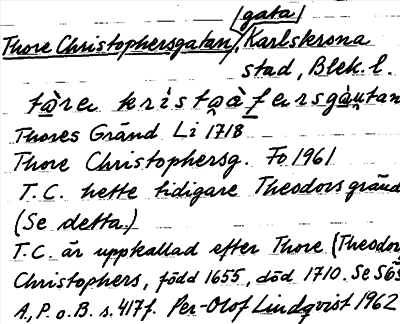 /gata/
Thore Christophersgatan, Karlskrona
stad, Blek. l.
tàre kristàfersgàutan
Thores Gränd Li 1718
Thore Christophersg. Fo 1961
T.C. hette tidigare Theodors gränd
(Se detta.)
T.C. är uppkallad efter Thore (Theodor
Christophers, född 1655, död 1710. Se SöS
A, P. o. B. s. 417 f. Per-Olof Lindqvist 1962